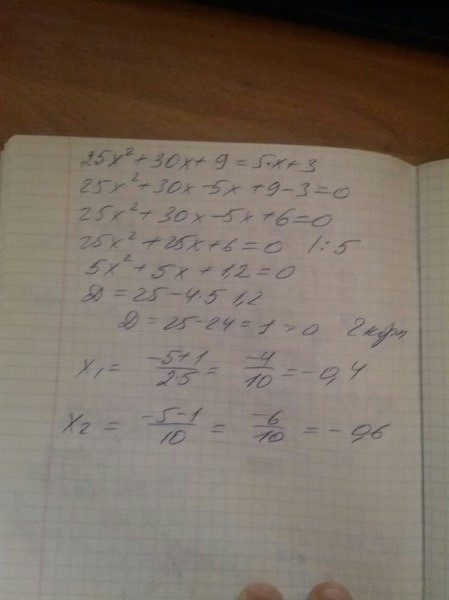 25x² + 30x + 9 = 5·x + 3
25x² + 30x - 5x + 9 - 3 = 0
25x² + 30x - 5x + 6 = 0
25x² + 25x + 6 = 0 /: 5
5x² + 5x + 1,2 = 0
D = 25 - 4·5 1,2
D = 25 - 24 = 1 > 0 2 корн
x₁ = \frac{-5+1}{2·5} = \frac{-4}{10} = -0,4
x₂ = \frac{-5-1}{10} = \frac{-6}{10} = -0,6